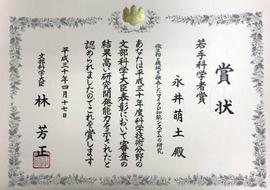 賞状
若手科学者賞
永井萌土 殿
微生物と機械を融合したマイクロ切能システムの研究
あなたは平成三十年度科学技術分野の
文部科学大臣表彰において審査の
結果高い研究開発能力を示されたと
認められましたのでこれを賞します
平成三十年四月十七日
文部科学大臣
林芳正